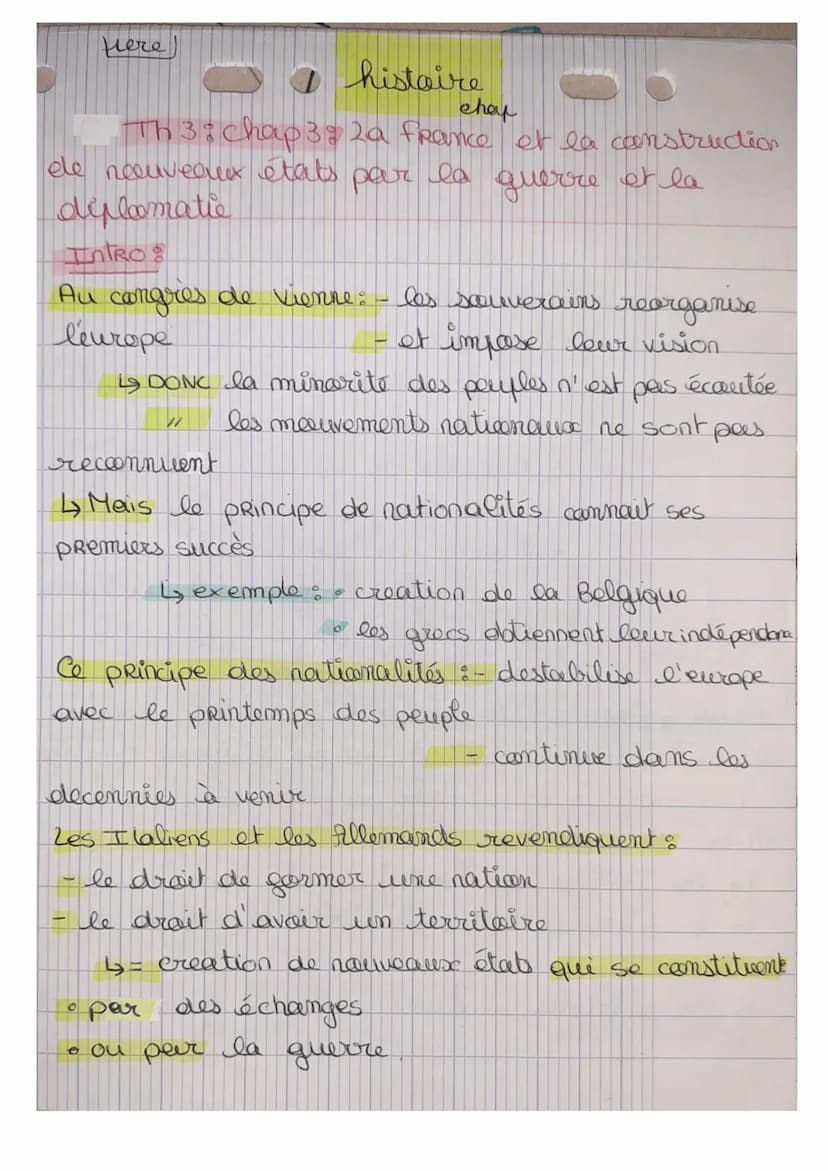 Mere)
histoire
chap
Th 3 : chap 3 : La france et la construction
de nouveaux états par la guerre et la
diplomatie
Intro :
Au congrès de Vienne : - les souverains reorganise
l'europe - et impose leur vision
↳ DONC la minorité des peuples n'est pas écoutée
" les mouvements nationaux ne sont pas
reconnuent
↳ Mais le principe de nationalités connait ses
premiers succès
↳ exemple : • creation de la Belgique
• les grecs obtiennent leur indépendan
Ce principe des nationalités : - destabilise l'europe
avec le printemps des peuple
- continue dans les
decennies à venir
Les Italiens et les Allemands revendiquent :
- le droit de former une nation
- le droit d'avoir un territoire
↳ = creation de nouveaux états qui se constituent
• par des échanges
• ou par la guerre.